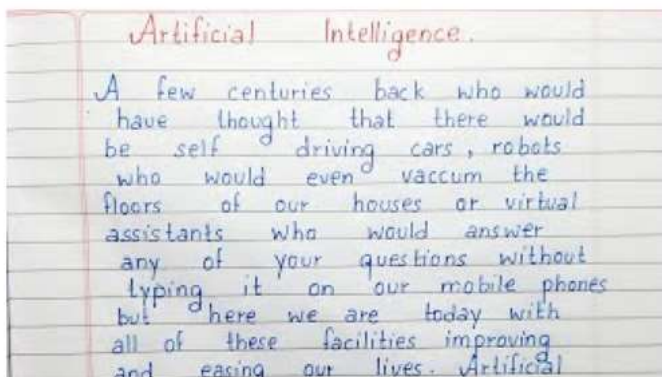 Artificial Intelligence.
A few centuries back who would
have thought that there would
be self driving cars, robots
who would even vaccum the
floors of our houses or virtual
assistants who would answer
any of your questions without
typing it on our mobile phones
but here we are today with
all of these facilities improving
and easing our lives. Artificial